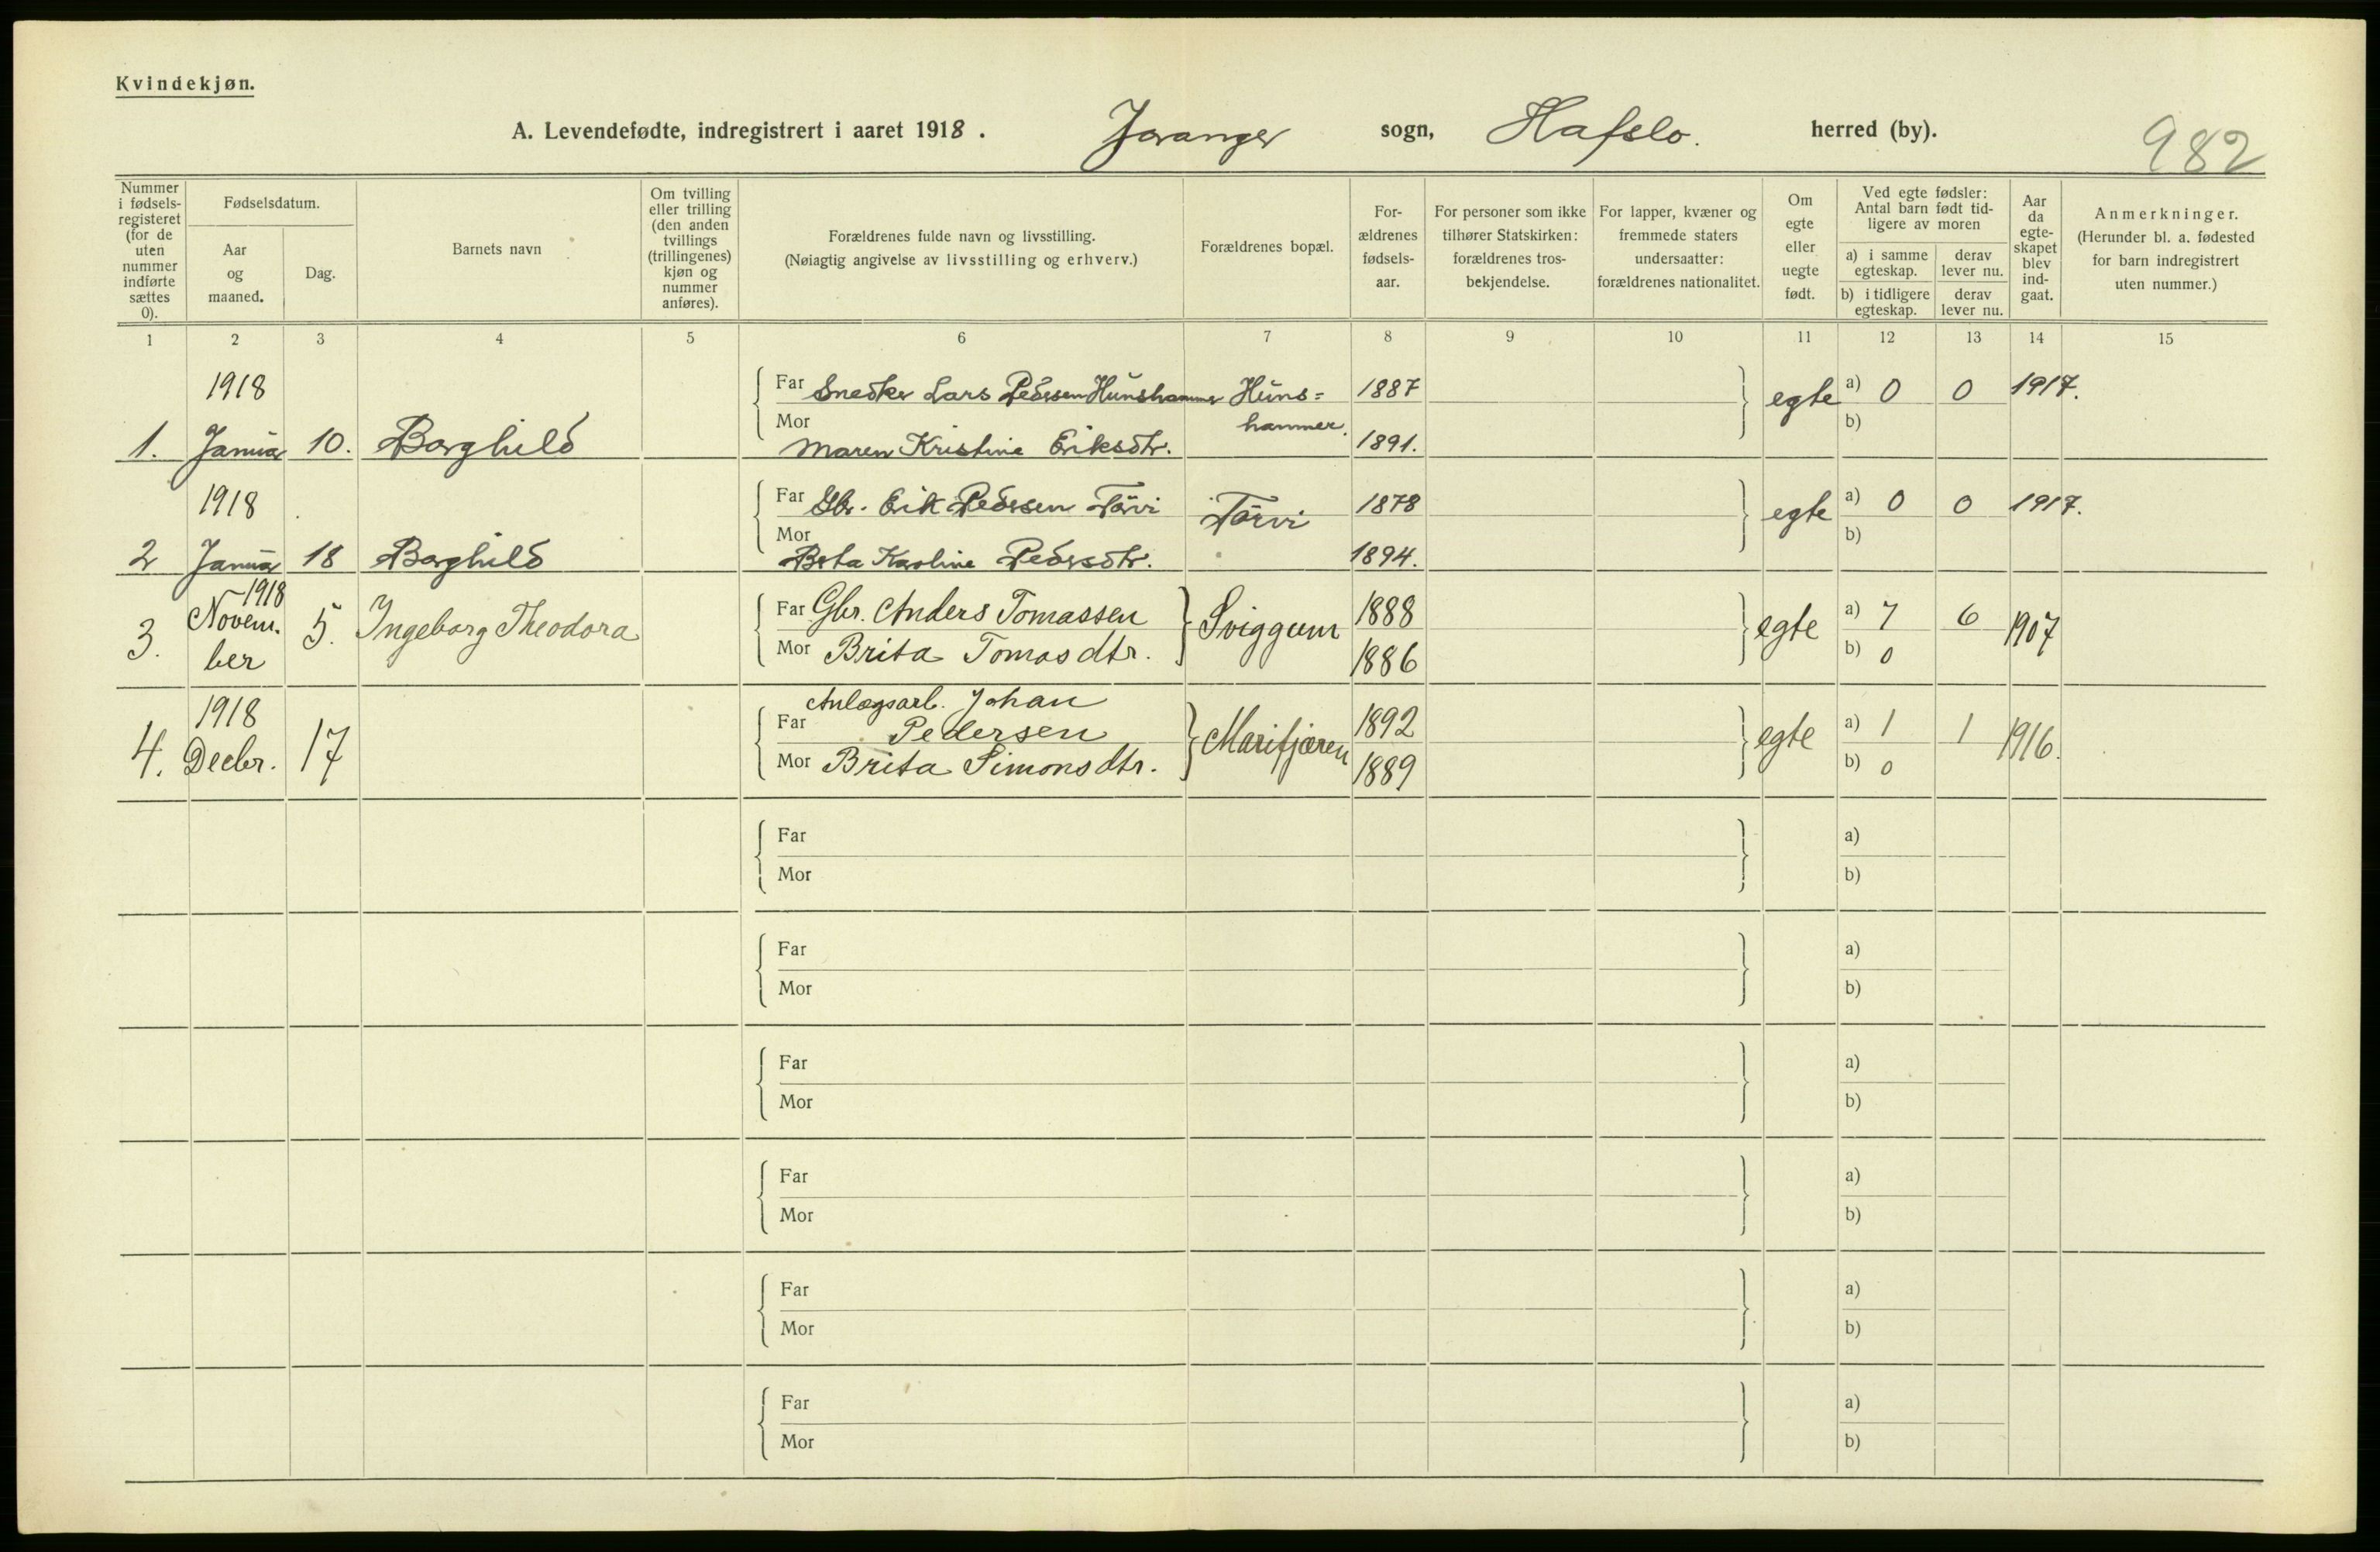 Kvindekjøn.
A. Levendefødte, indregistrert i aaret 1918 . Joranger sogn, Hafslo. herred (by).
982
Nummer i fødsels-registeret (for de uten nummer indførte sættes 0).
Fødselsdatum.
Aar og maaned.
Dag.
Barnets navn
Om tvilling eller trilling (den anden tvillings (trillingenes) kjøn og nummer anføres).
Forældrenes fulde navn og livsstilling.
(Nøiagtig angivelse av livsstilling og erhverv.)
Forældrenes bopæl.
For-ældrenes fødsels-aar.
For personer som ikke tilhører Statskirken: forældrenes tros-bekjendelse.
For lapper, kvæner og fremmede staters undersaatter: forældrenes nationalitet.
Om egte eller uegte født.
Ved egte fødsler: Antal barn født tid-ligere av moren
a) i samme egteskap.
derav lever nu.
b) i tidligere egteskap.
derav lever nu.
Aar da egte-skapet blev ind-gaat.
Anmerkninger.
(Herunder bl. a. fødested for barn indregistrert uten nummer.)
1 2 3 4 5 6 7 8 9 10 11 12 13 14 15
1918 Far Snedker Lars Pedersen Hunshammer Huns= 1887 egte a) 0 0 1917.
1. Januar 10. Borghild Mor Maren Kristine Eriksdtr. hammer. 1891. b)
1918 Far Gbr. Erik Pedersen Törvi Törvi 1878 egte a) 0 0 1917.
2 Januar 18 Borghild Mor Brta Karoline Pedersdtr. 1894. b)
1918
3. Novem. 5. Ingeborg Theodora Far Gbr. Anders Tomassen Sviggum 1888 egte a) 7 6 1907
ber Mor Brita Tomasdtr. 1886 b) 0
1918 Anlægsarb. Johan
Far Pedersen Marifjæren 1892 egte a) 1 1 1916.
4. Decbr. 17 Mor Brita Simonsdtr. 1889 b) 0
Far a)
Mor b)
Far a)
Mor b)
Far a)
Mor b)
Far a)
Mor b)
Far a)
Mor b)
Far a)
Mor b)